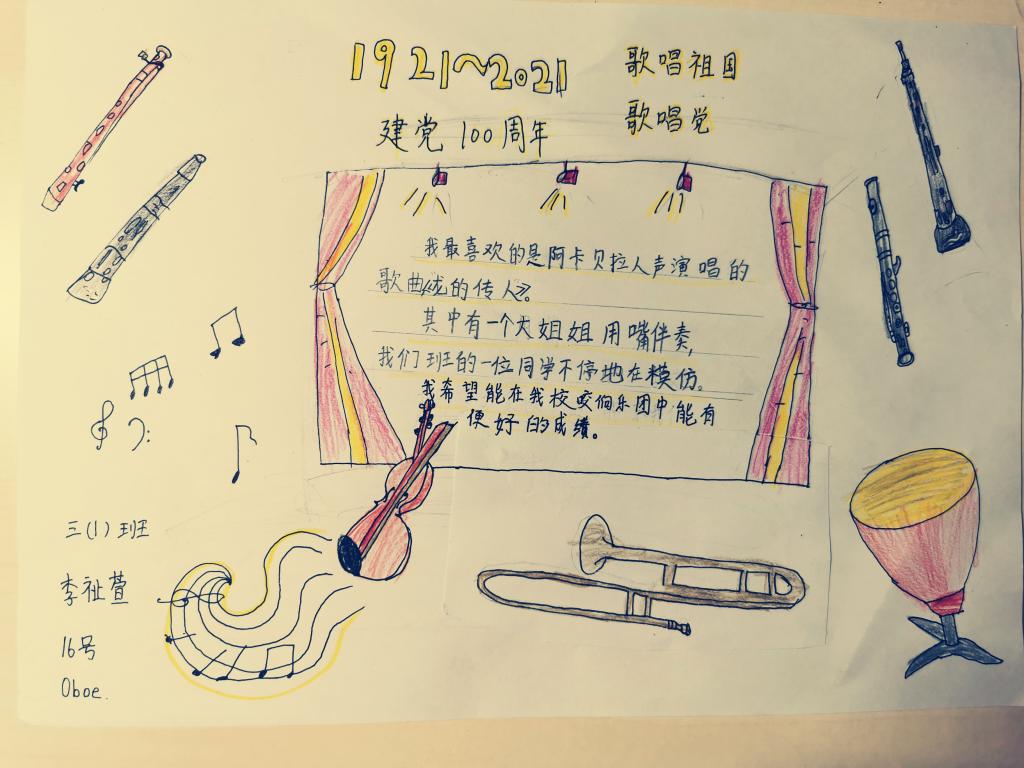 1921~2021
歌唱祖国
歌唱党
建党100周年
我最喜欢的是阿卡贝拉人声演唱的
歌曲《龙的传人》。
其中有一个大姐姐用嘴伴奏,
我们班的一位同学不停地在模仿。
我希望能在我校交响乐团中能有
更好的成绩。
三(1)班
李祉萱
16号
Oboe.